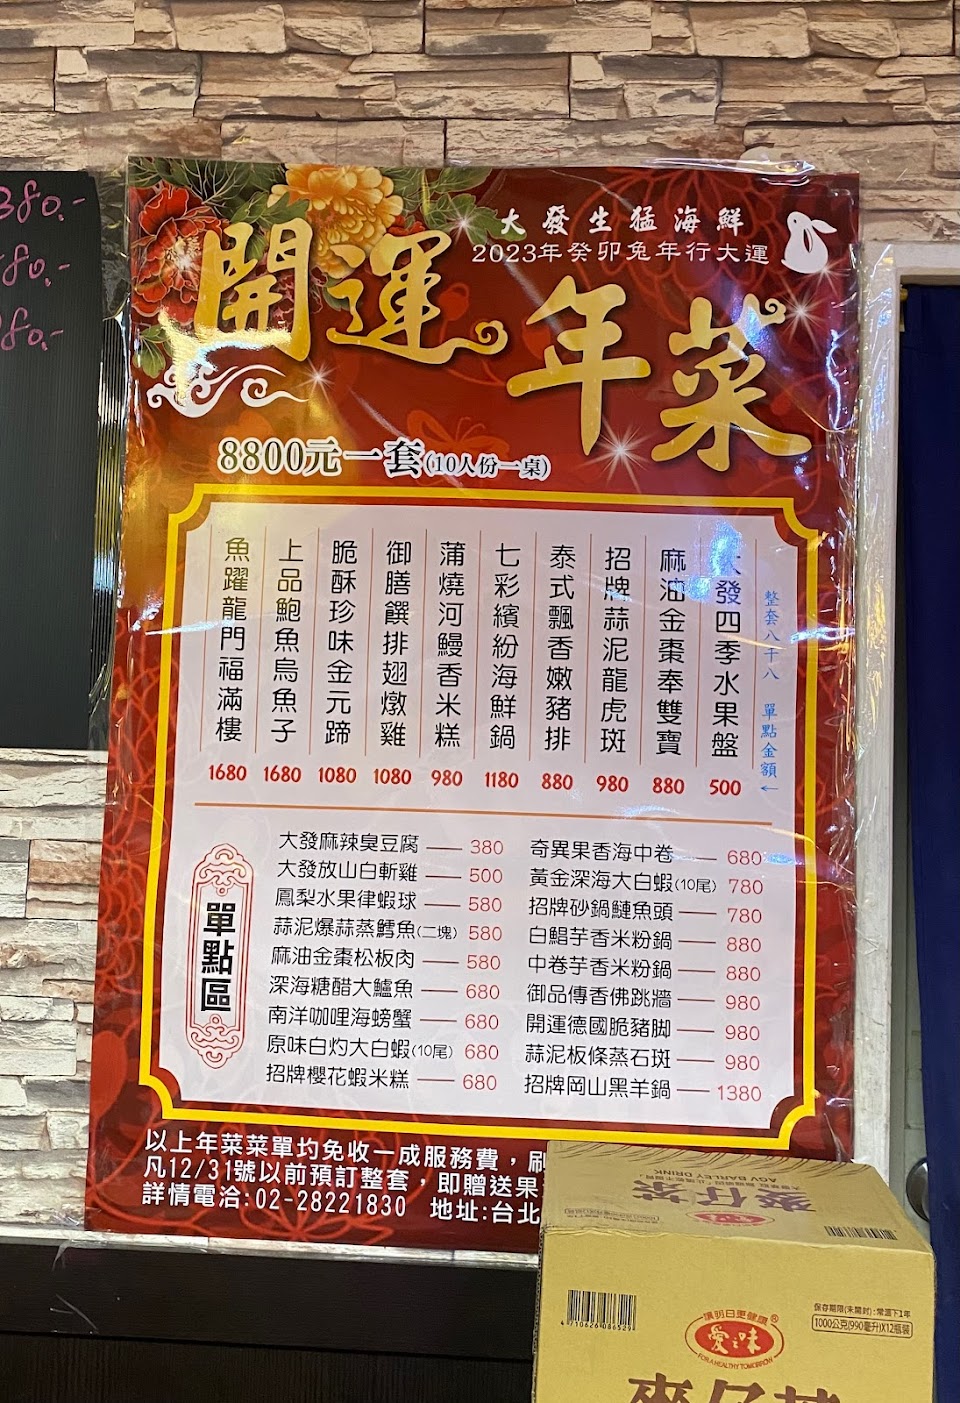 380.-
80.-
80.-
大發生猛海鮮
2023年癸卯兔年行大運
開運年菜
8800元一套(10人份一桌)
整套八千八 單點金額↓
發四季水果盤 500
麻油金棗奉雙寶 880
招牌蒜泥龍虎斑 980
泰式飄香嫩豬排 880
七彩繽紛海鮮鍋 1180
蒲燒河鰻香米糕 980
御膳饌排翅燉雞 1080
脆酥珍味金元蹄 1080
上品鮑魚烏魚子 1680
魚躍龍門福滿樓 1680
單點區
大發麻辣臭豆腐 — 380
大發放山白斬雞 — 500
鳳梨水果律蝦球 — 580
蒜泥爆蒜蒸鱈魚(二塊) 580
麻油金棗松板肉 — 580
深海糖醋大鱸魚 — 680
南洋咖哩海螃蟹 — 680
原味白灼大白蝦(10尾) 680
招牌櫻花蝦米糕 — 680
奇異果香海中卷 — 680
黃金深海大白蝦(10尾) 780
招牌砂鍋鰱魚頭 — 780
白鯧芋香米粉鍋 — 880
中卷芋香米粉鍋 — 880
御品傳香佛跳牆 — 980
開運德國脆豬脚 — 980
蒜泥板條蒸石斑 — 980
招牌岡山黑羊鍋 — 1380
以上年菜菜單均免收一成服務費，刷
凡12/31號以前預訂整套，即贈送果
詳情電洽:02-28221830 地址:台北
麥仔茶
AGV BARLEY DRINK
4710626086529
讓明日更健康
愛之味
FOR A HEALTHY TOMORROW
保存期限(未開封):常溫下1年
1000公克(990毫升)X12瓶裝
麥仔茶